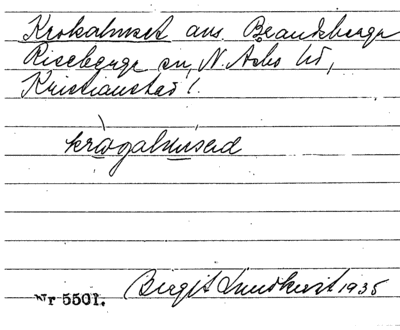 Krokahuset aus. Brandsberga
Riseberga sn, N. Åsbo hd,
Kristianstad l.
krågahuised
Nr 5501. Birgit Lundkvist 1935